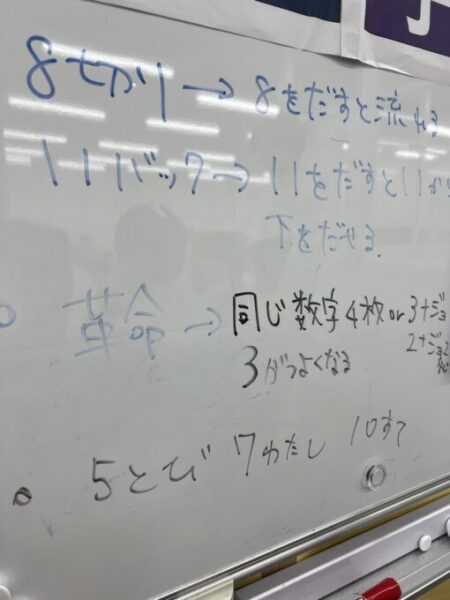 8せかり → 8をだすと流れる
11バック → 11をだすと11から
下をだせる
革命 → 同じ数字4枚 or 3+ジョ
3がつよくなる 2+ジョ2
5とび 7わたし 10すて